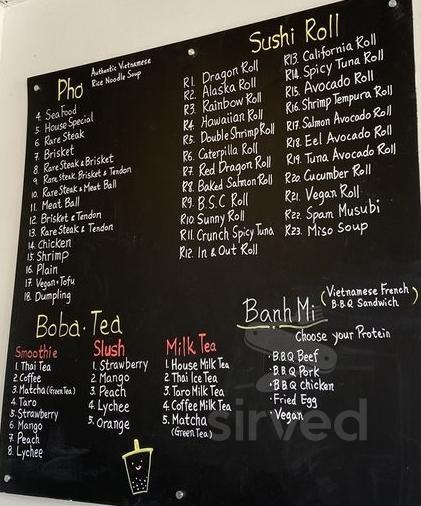 Pho
Authentic Vietnamese
Rice Noodle Soup
4. Sea Food
5. House Special
6. Rare Steak
7. Brisket
8. Rare Steak & Brisket
9. Rare Steak Brisket & Tendon
10. Rare Steak & Meat Ball
11. Meat Ball
12. Brisket & Tendon
13. Rare Steak & Tendon
14. Chicken
15. Shrimp
16. Plain
17. Vegan + Tofu
18. Dumpling
Sushi Roll
R1. Dragon Roll
R2. Alaska Roll
R3. Rainbow Roll
R4. Hawaiian Roll
R5. Double Shrimp Roll
R6. Caterpilla Roll
R7. Red Dragon Roll
R8. Baked Salmon Roll
R9. B.S.C Roll
R10. Sunny Roll
R11. Crunch Spicy Tuna
R12. In & Out Roll
R13. California Roll
R14. Spicy Tuna Roll
R15. Avocado Roll
R16. Shrimp Tempura Roll
R17. Salmon Avocado Roll
R18. Eel Avocado Roll
R19. Tuna Avocado Roll
R20. Cucumber Roll
R21. Vegan Roll
R22. Spam Musubi
R23. Miso Soup
Boba Tea
Smoothie
1. Thai Tea
2. Coffee
3. Matcha (Green Tea)
4. Taro
5. Strawberry
6. Mango
7. Peach
8. Lychee
Slush
1. Strawberry
2. Mango
3. Peach
4. Lychee
5. Orange
Milk Tea
1. House Milk Tea
2. Thai Ice Tea
3. Taro Milk Tea
4. Coffee Milk Tea
5. Matcha
(Green Tea)
Banh Mi
(Vietnamese French
B.B.Q Sandwich)
Choose your Protein
· B.B.Q Beef
· B.B.Q Pork
· B.B.Q Chicken
· Fried Egg
· Vegan
sirved